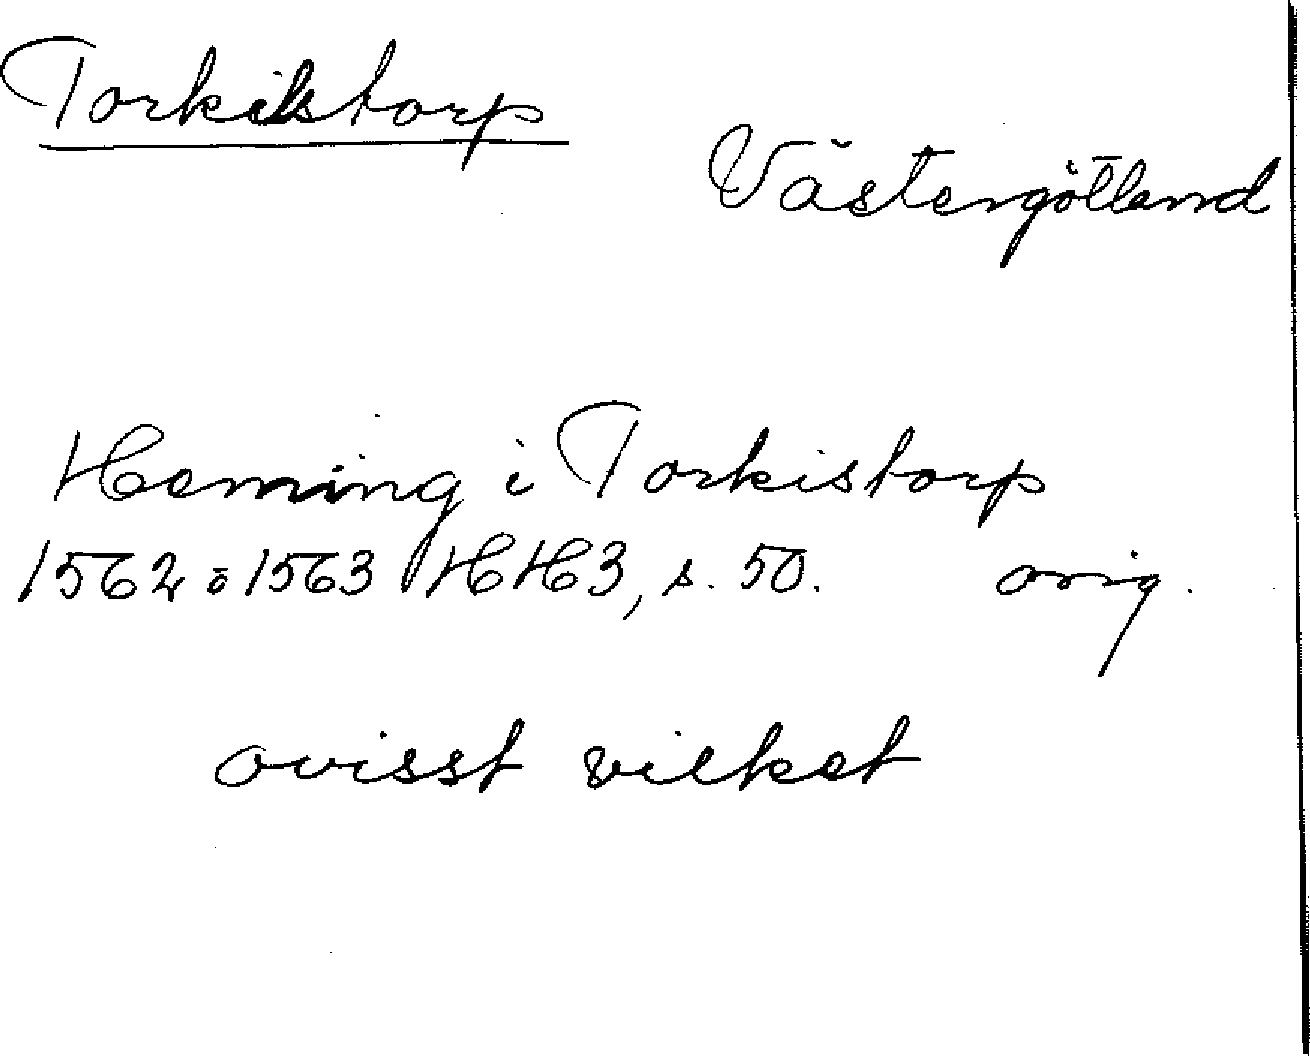 Torkilstorp
Västergötland
Heming i Torkistorp
1562 o 1563 HH3, s. 50. orig.
ovisst vilket